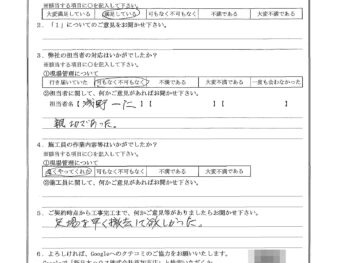 ※該当する項目に○を記入して下さい。
大変満足している 満足している 可もなく不可もなく 不満である 大変不満である
2．「1」についてのご意見をお聞かせ下さい。
3．弊社の担当者の対応はいかがでしたか？
※該当する項目に○を記入して下さい。
①現場管理について
行き届いていた 可もなく不可もなく 不満である 大変不満である 一度も会わなかった
②担当者に関して、何かご意見があればお聞かせ下さい。
担当者名【 浅野 一仁 】【 】【 】
親切であった。
4．施工員の作業内容等はいかがでしたか？
※該当する項目に○を記入して下さい。
①現場管理について
良くやってくれた 可もなく不可もなく 不満である 大変不満である
②施工員に関して、何かご意見があればお聞かせ下さい。
5．ご契約時点から工事完工まで、何かご意見等がありましたらお聞かせ下さい。
足場を早く撤去して欲しかった。
6．よろしければ、Googleへのクチコミのご協力をお願いいたします。